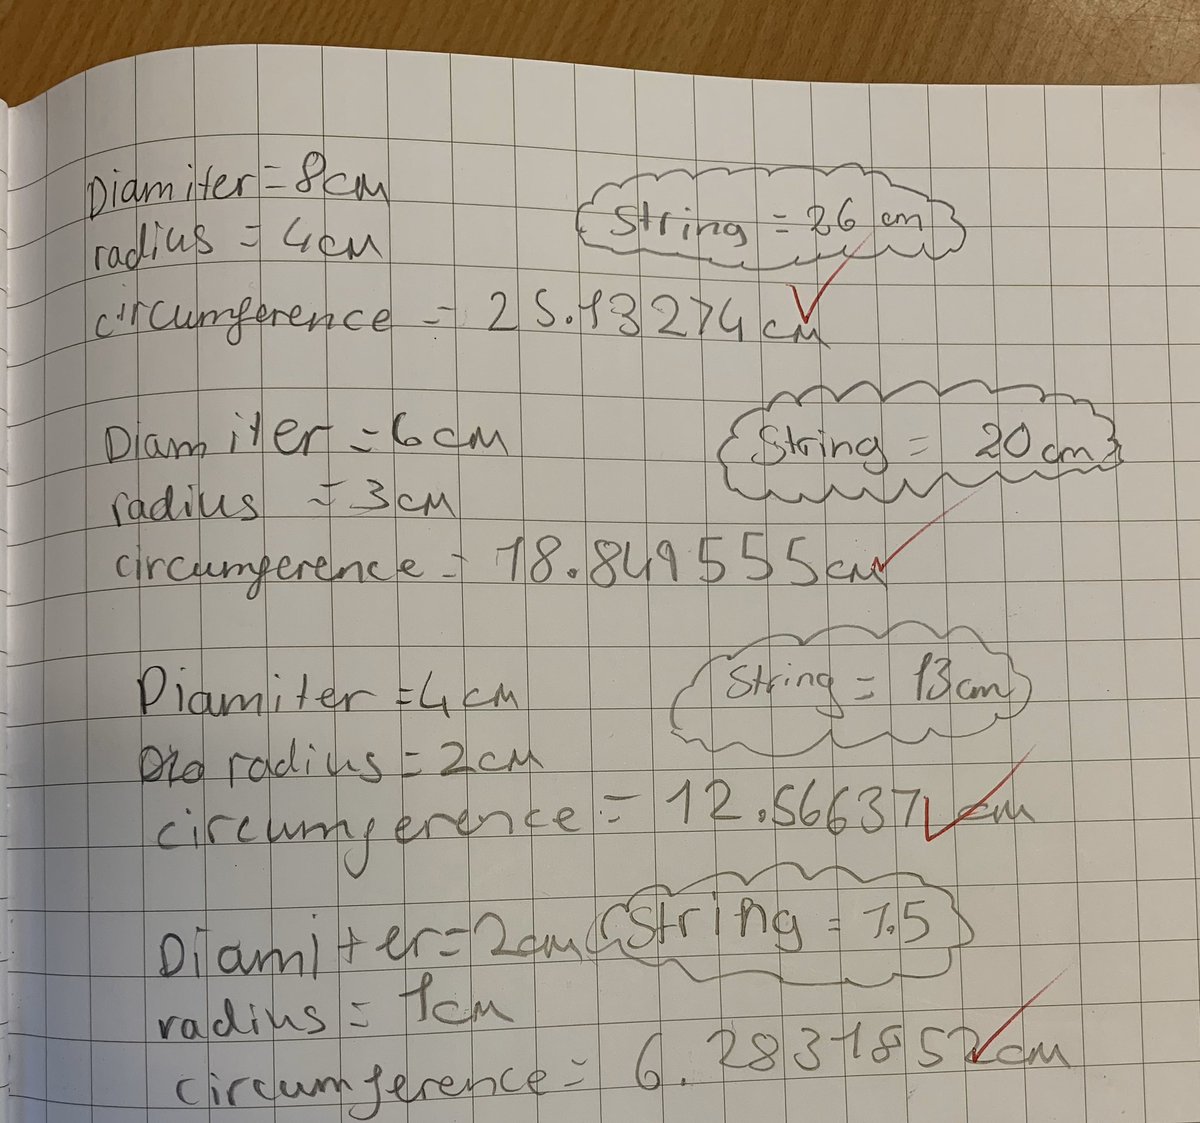 Diamiter = 8cm
String = 26 cm
radius = 4cm
circumference = 25.13274 cm
Diamiter = 6cm
String = 20cm
radius = 3cm
circumference = 18.849555cm
Diamiter = 4cm
String = 13cm
radius = 2cm
circumference = 12.56637 cm
Diamiter = 2cm
String = 7.5
radius = 1cm
circumference = 6.2831852cm